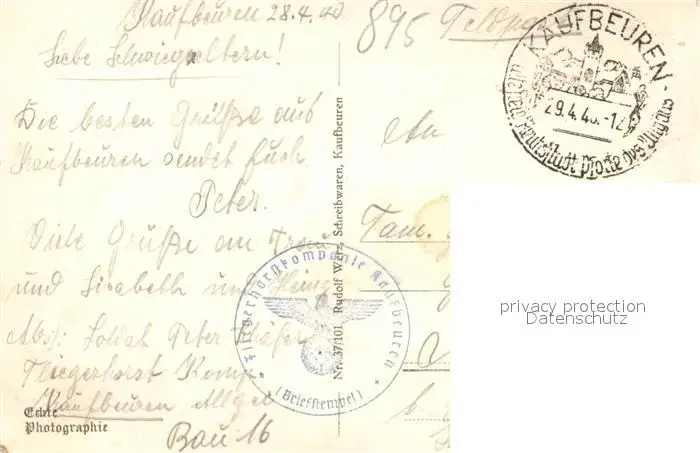 Kaufbeuren 28.4.40
Liebe Schwiegeltern!
Die besten Grüße aus
Kaufbeuren sendet Euch
Peter.
Viele Grüße an Frau
und Lisabeth und Heinz
Abs: Soldat Peter Schäfer
Fliegerhorst Komp.
Kaufbeuren Allgäu
Bau 16
Echte
Photographie
Nr. 37/101. Rudolf Wörz, Schreibwaren, Kaufbeuren
895 Feldpost
KAUFBEUREN
29.4.40.-12
Pforte des Allgäus
An
Fam.
Fliegerhorstkompanie Kaufbeuren
(Briefstempel)
privacy protection
Datenschutz